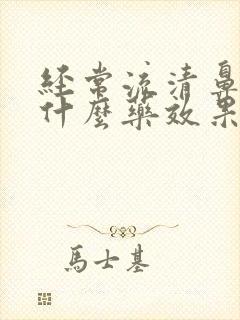 经常流清鼻
什麼藥效果
馬士基